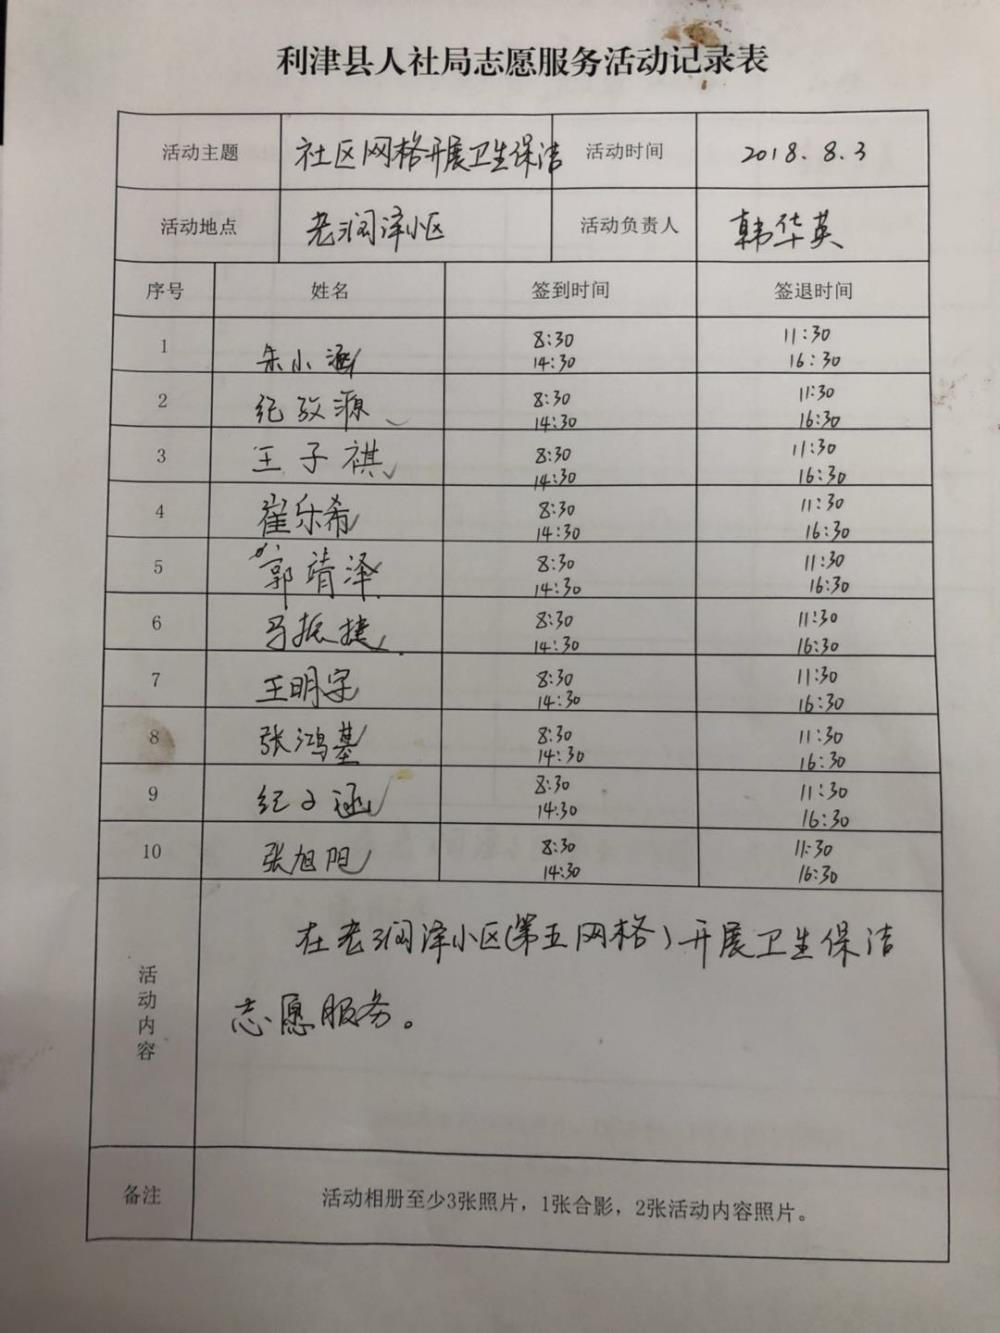 利津县人社局志愿服务活动记录表
活动主题 社区网格开展卫生保洁 活动时间 2018.8.3
活动地点 老润泽小区 活动负责人 韩华英
序号 姓名 签到时间 签退时间
8:30 11:30
1 朱小涵 14:30 16:30
8:30 11:30
2 纪孜源 14:30 16:30
8:30 11:30
3 王子祺 14:30 16:30
8:30 11:30
4 崔乐希 14:30 16:30
8:30 11:30
5 郭靖泽 14:30 16:30
8:30 11:30
6 马振捷 14:30 16:30
8:30 11:30
7 王明宇 14:30 16:30
8:30 11:30
8 张鸿基 14:30 16:30
8:30 11:30
9 纪子涵 14:30 16:30
8:30 11:30
10 张旭阳 14:30 16:30
活动内容
在老润泽小区(第五网格)开展卫生保洁
志愿服务。
备注 活动相册至少3张照片，1张合影，2张活动内容照片。